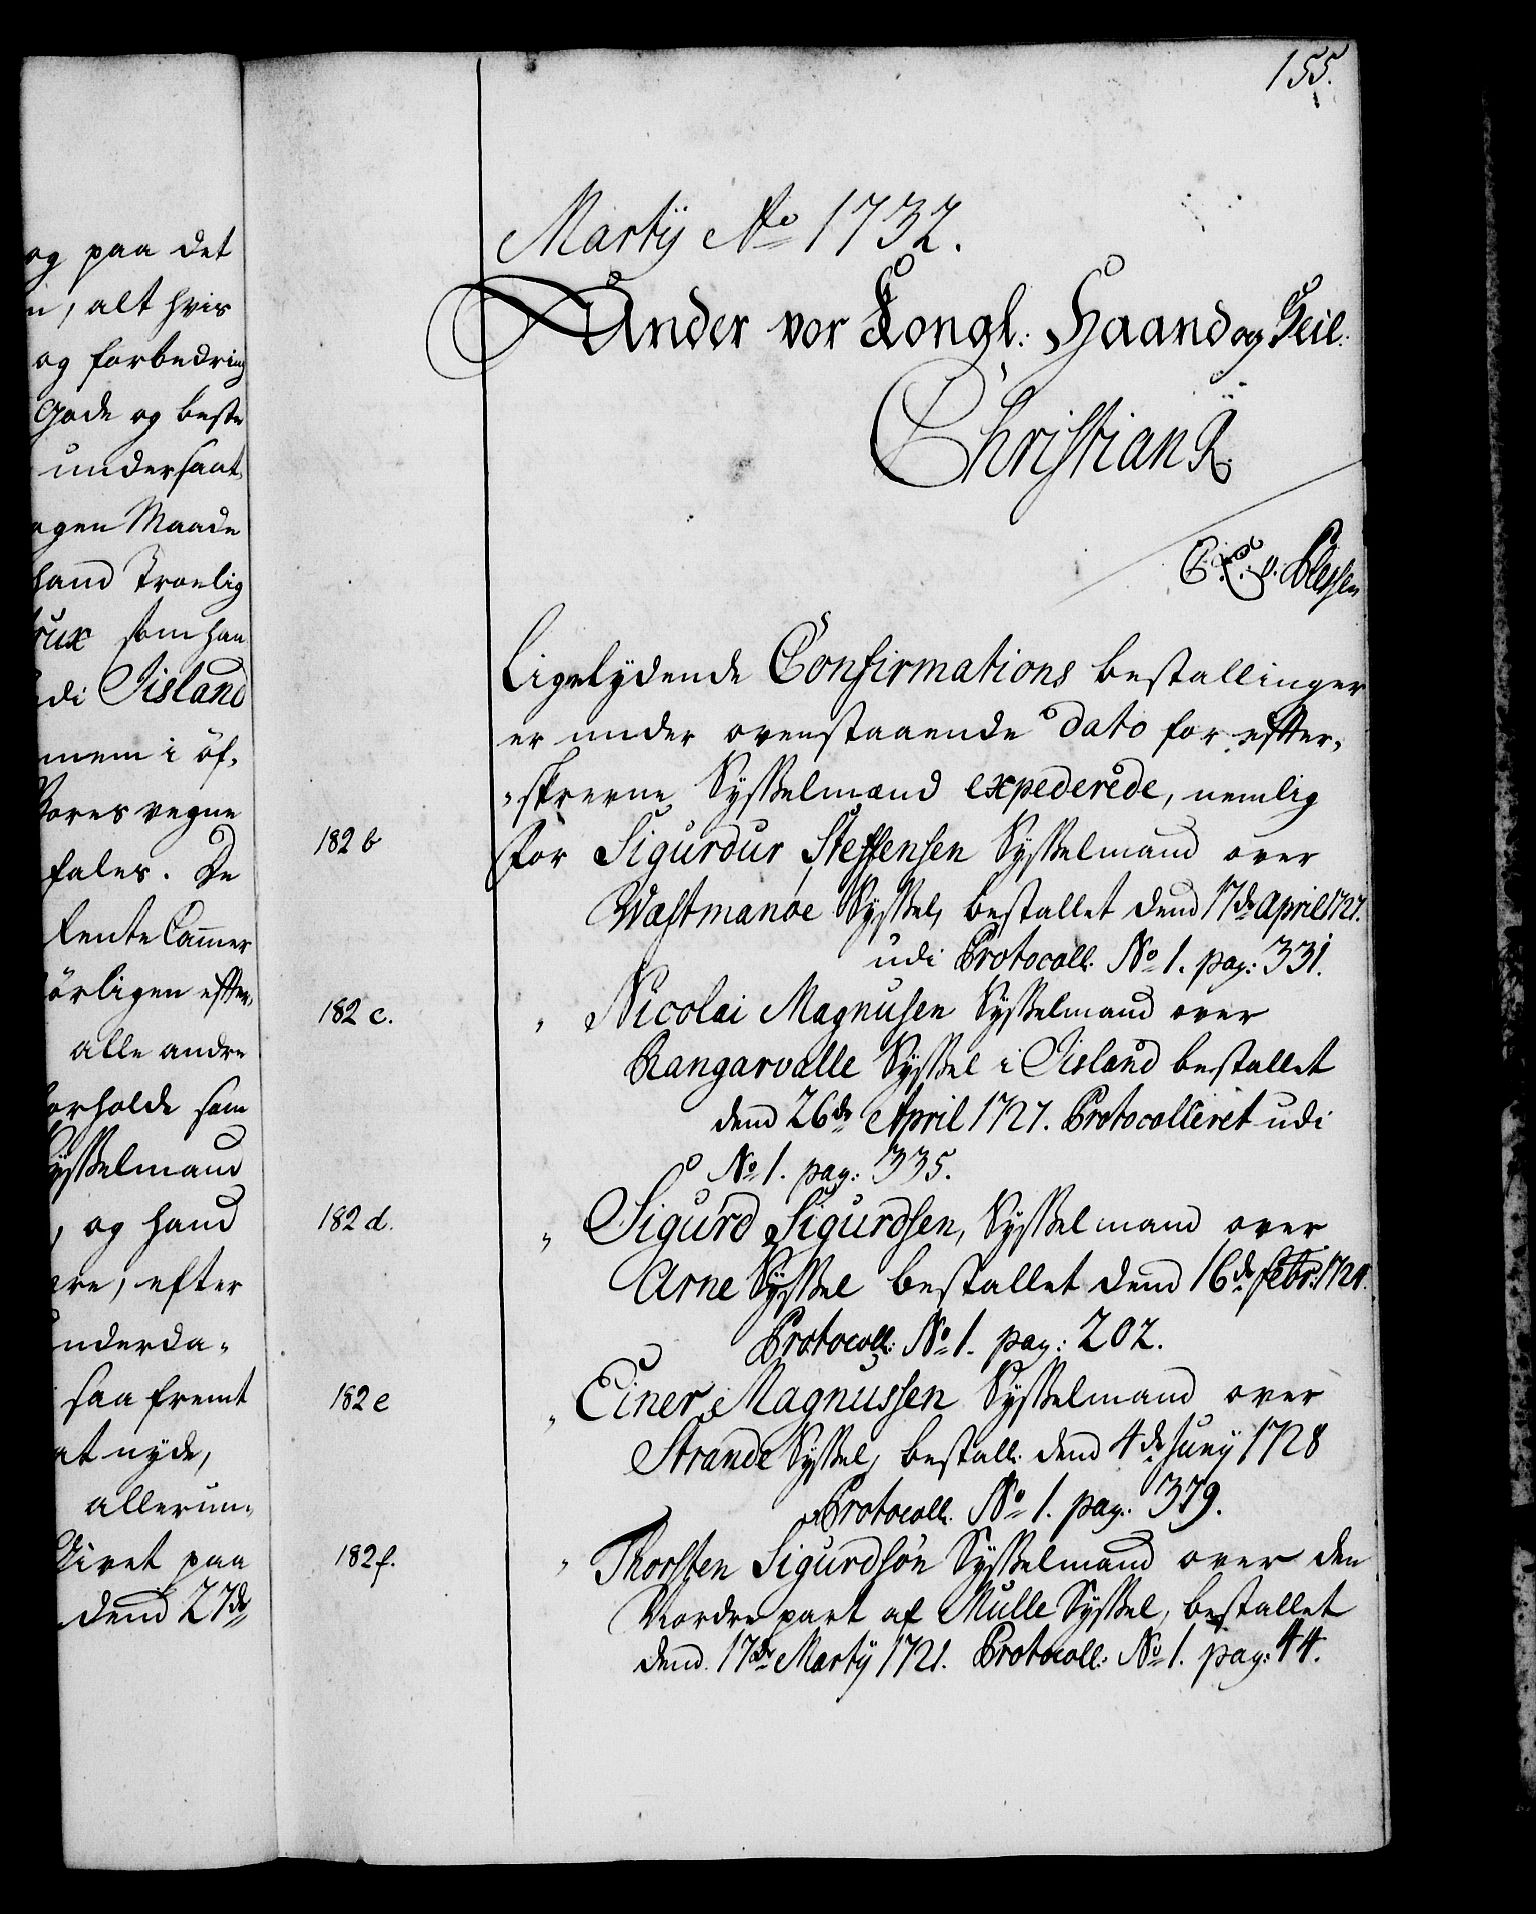 og paa det
, alt hvis
og forbedring
Gode og beste
undersaat
Maade
hand Troelig
som haa
di Jisland
mem i öf-
Vores vegne
fales. De
Rente Cam̄er
örligen effter,
alle andre
forholde som
Sysselmand
, og hand
efter
underda-
saa fremt
at nyde,
allerun-
Givet paa
dend 27de
155.
Martij Ao 1732.
Under vor Kongl: Haand og Seil:
Christian R.
C: A: v: Plessen
Ligelydende Confirmations bestallinger
er under ovenstaaende dato for effter-
-skrevne Sysselmænd expederede, nemlig
182 b
for Sigurdur Steffensen Sysselmand over
Wæstmanøe Syssel, bestallet dend 17de April 1727.
udi Protocoll: No 1. pag: 331.
182 c.
" Nicolai Magnusen Sysselmand over
Rangarvalle Syssel i Jisland bestallet
dend 26de April 1727. Protocolleret udi
No 1. pag: 335.
182 d.
" Sigurd Sigurdsen, Sysselmand over
Arne Syssel bestallet dend 16de Febr: 1724.
Protocoll: No 1. pag: 202.
182 e
" Einer Magnussen Sysselmand over
Strande Syssel, bestall: dend 4de Junij 1728
Protocoll: No 1. pag: 379.
182 f.
" Thorsten Sigurdsøn Sysselmand over den
Nordre part af Mulle Syssel, bestallet
dend. 17de Martij 1721. Protocoll: No 1. pag: 44.